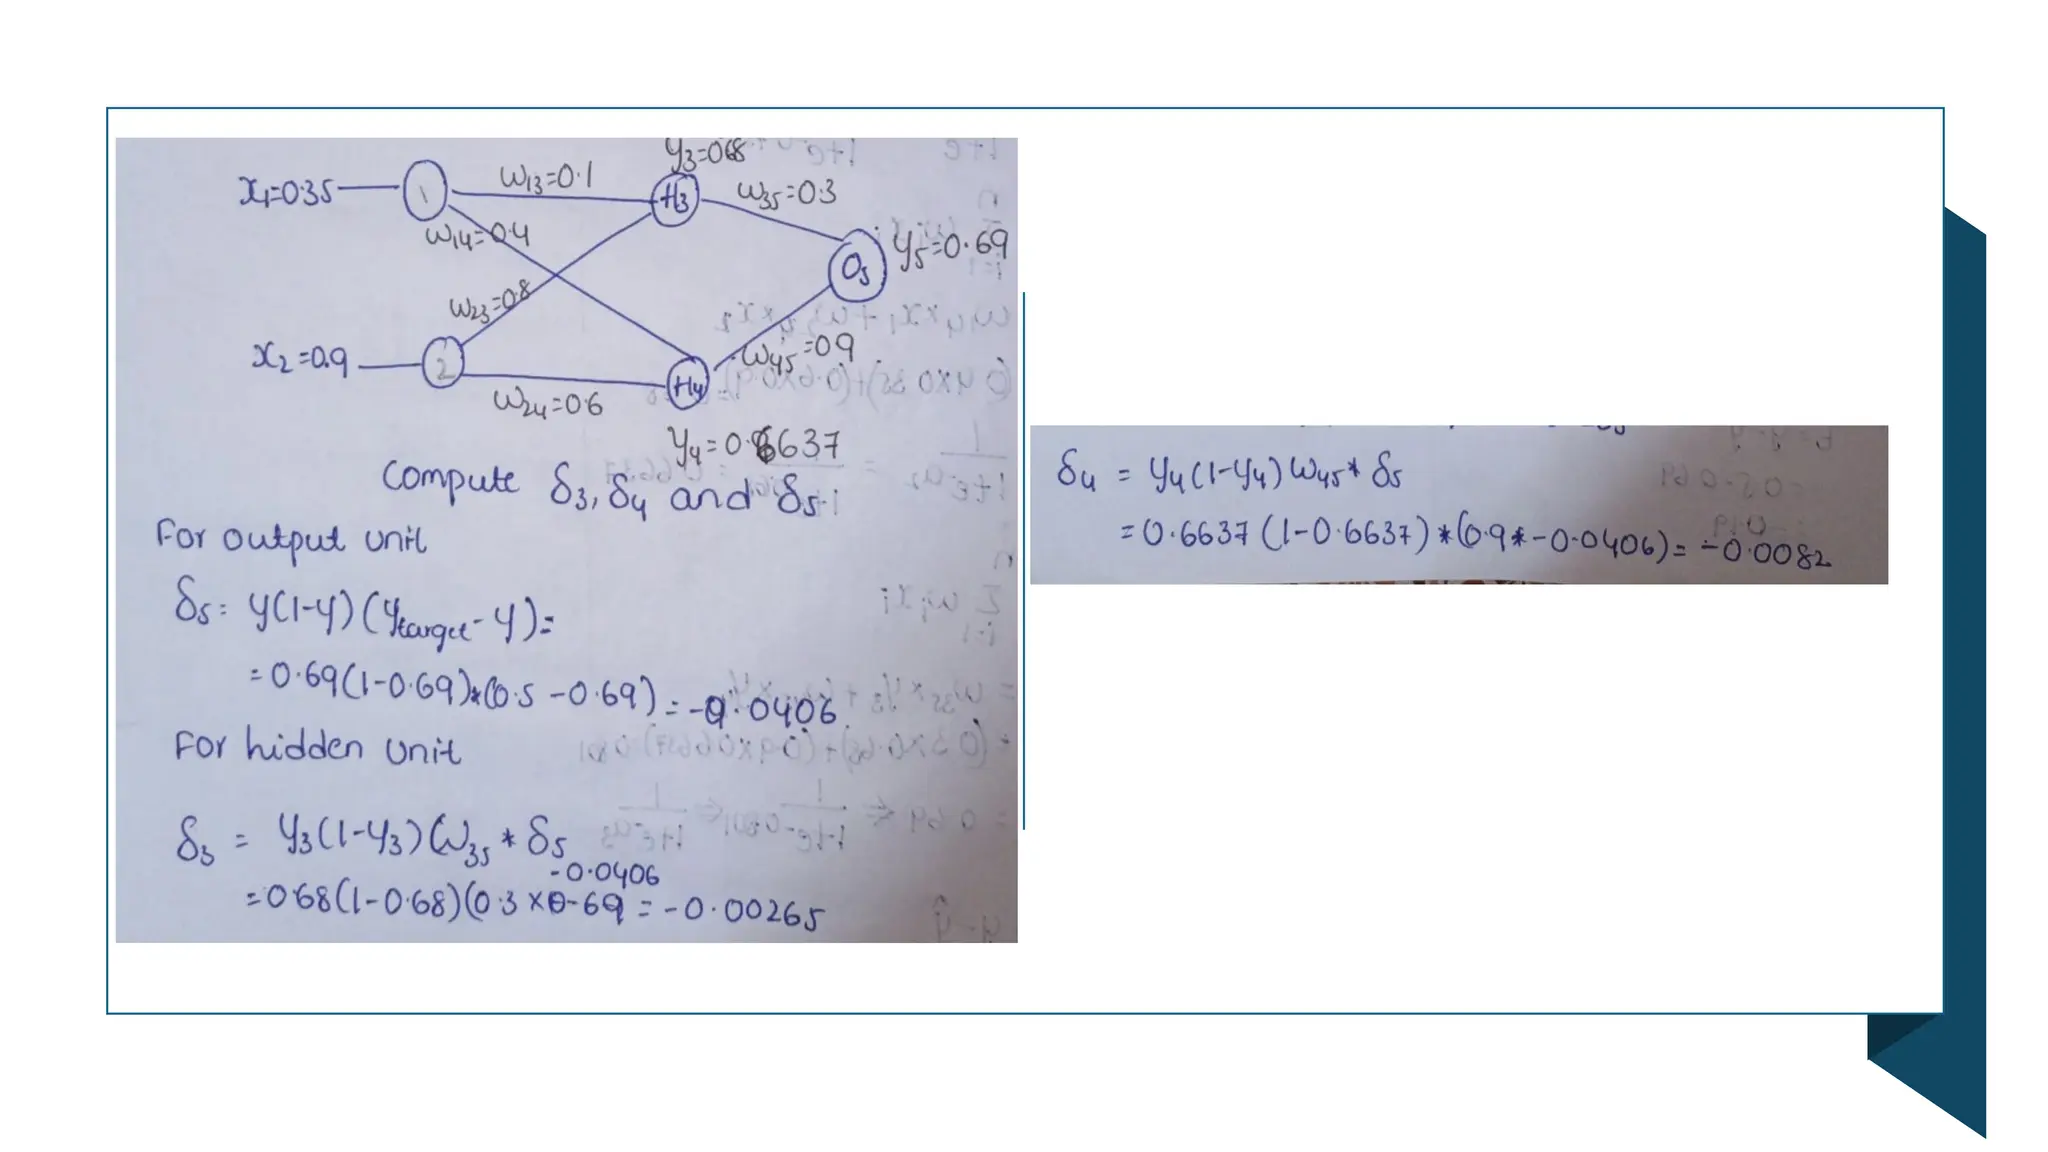 y3=068
x1=0.35
1
w13=0.1
H3
w35=0.3
w14=0.4
y5=0.69
O5
w23=0.8
x2=0.9
2
w45=09
H4
w24=0.6
y4=0.6637
Compute δ3, δ4 and δ5
For output unit
δ5= y(1-y)(ytarget-y)=
=0.69(1-0.69)*(0.5-0.69)=-0.0406
For hidden unit
δ3 = y3(1-y3)(w35*δ5
-0.0406
=068(1-0.68)(0.3×0-69=-0.00265
δ4 = y4(1-y4)w45*δ5
=0.6637(1-0.6637)*(0.9*-0.0406)=-0.0082